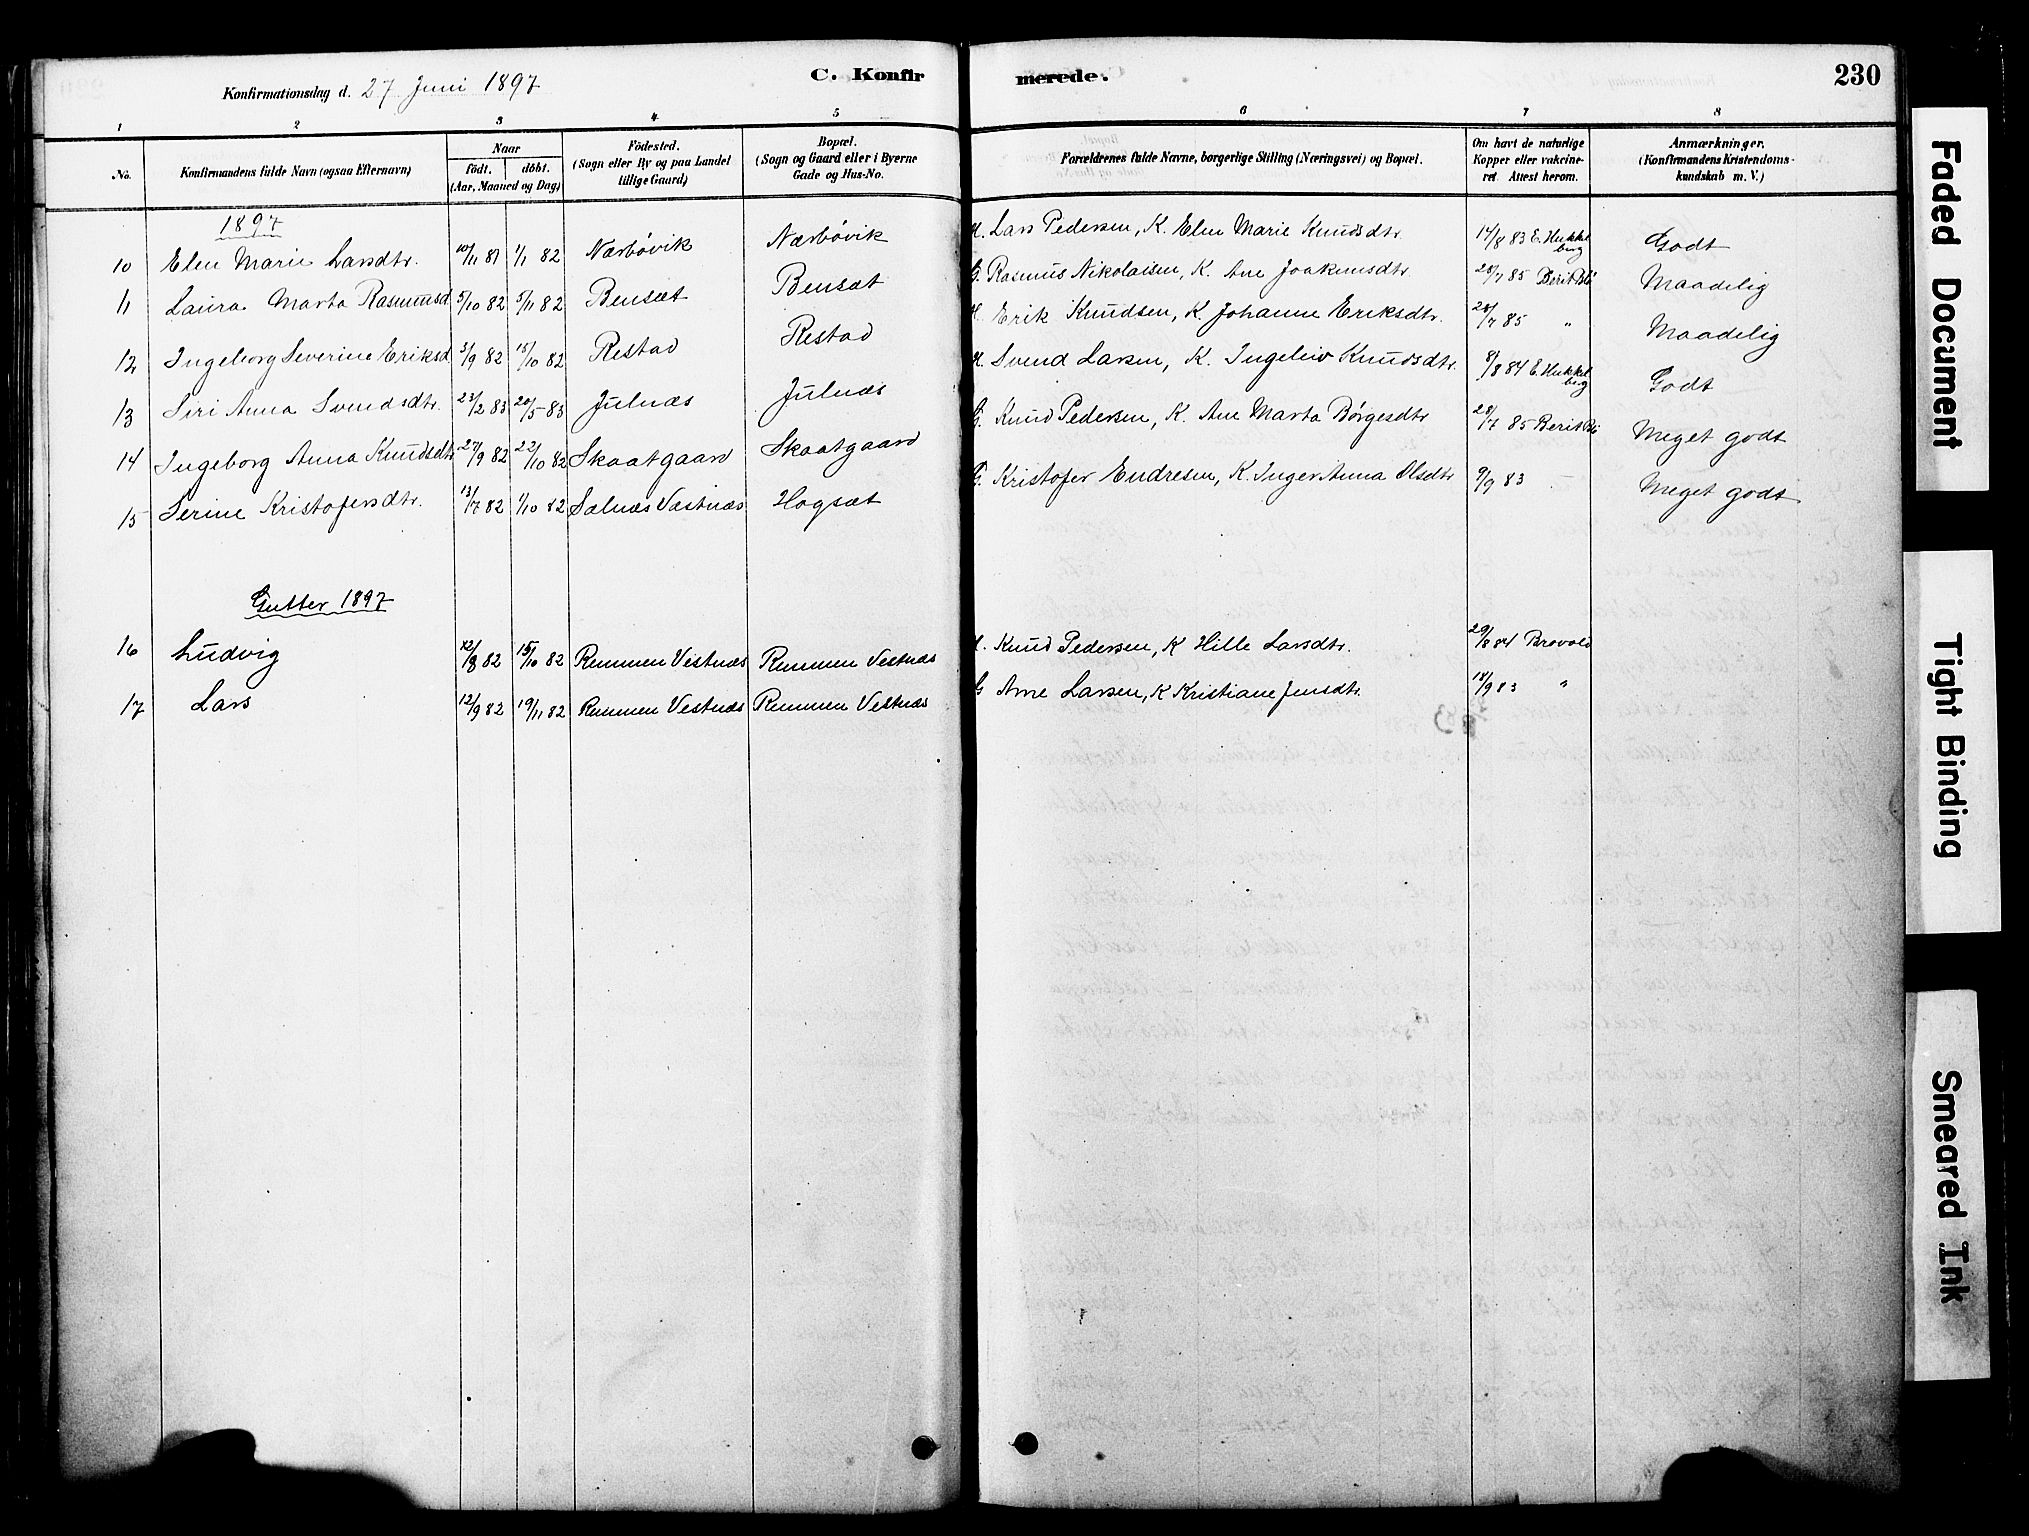 Konfirmationsdag d. 27 Juni 1897
C. Konfirmerede.
230
1 2 3 4 5 6 7 8
No.
Konfirmandens fulde Navn (ogsaa Efternavn)
Naar
födt. döbt.
(Aar, Maaned og Dag)
Födested.
(Sogn eller By og paa Landet
tillige Gaard)
Bopæl.
(Sogn og Gaard eller i Byerne
Gade og Hus-No.
Forældrenes fulde Navne, borgerlige Stilling (Næringsvei) og Bopæl.
Om havt de naturlige
Kopper eller vakcine-
ret Attest herom.
Anmærkninger.
(Konfirmandens Kristendoms-
kundskab m. V.)
1897
10 Elen Marie Larsdtr. 10/11 81 1/1 82 Nærbövik Nærbövik H. Lars Pedersen, K. Elen Marie Knudsdtr. 14/8 83 E. Hukkelberg Godt
11 Laura Marta Rasmusd 5/10 82 5/11 82 Bensæt Bensæt G. Rasmus Nikolaisen, K. Ane Joakimsdtr. 28/7 85 Berit Maadelig
12 Ingeborg Severine Eriksd 3/9 82 15/10 82 Restad Restad H. Erik Knudsen, K. Johanne Eriksdtr. 28/7 85 " Maadelig
13 Siri Anna Svendsdtr. 23/2 83 20/5 83 Julnæs Julnæs H. Svend Larsen, K. Ingeleiv Knudsdtr. 8/8 84 E. Hukkelberg Godt
14 Ingeborg Anna Knudsdtr 27/9 82 22/10 82 Skaatgaard Skaatgaard G. Knud Pedersen, K. Ane Marta Börgesdtr 28/7 85 Berit Meget godt
15 Serine Kristofersdtr. 13/7 82 1/10 82 Salnæs Vestnæs Hogsæt G. Kristofer Endresen, K. Inger Anna Olsdtr 9/9 83 — Meget godt
Gutter 1897
16 Ludvig 12/8 82 15/10 82 Remmen Vestnæs Remmen Vestnæs H. Knud Pedersen, K Hille Larsdtr. 29/8 84 Brovold
17 Lars 12/9 82 19/11 82 Remmen Vestnæs Remmen Vestnæs G Arne Larsen, K Kristiane Jensdtr. 18/9 83 "
Faded Document
Tight Binding
Smeared Ink